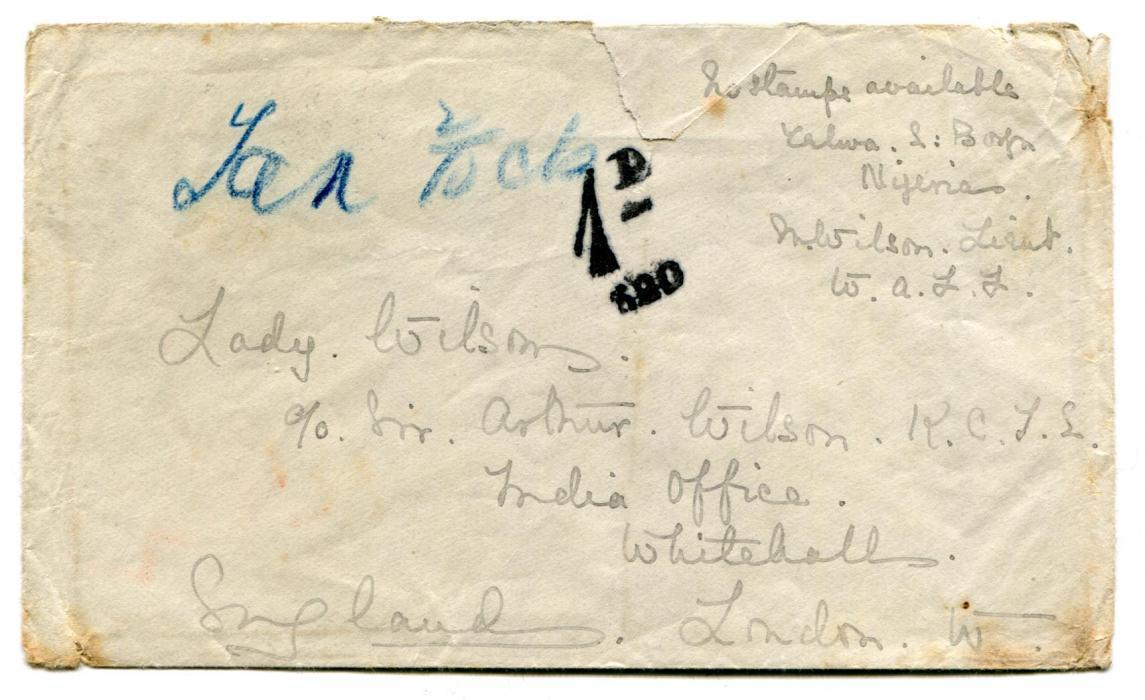 No stamps available
Yelwa. S: Borgu
Nigeria.
M. Wilson. Lieut.
W. A. F. F.
Tax
1D
620
Lady. Wilson.
c/o. Sir. Arthur. Wilson. K. C. I. E.
India Office.
Whitehall.
England. London. W.